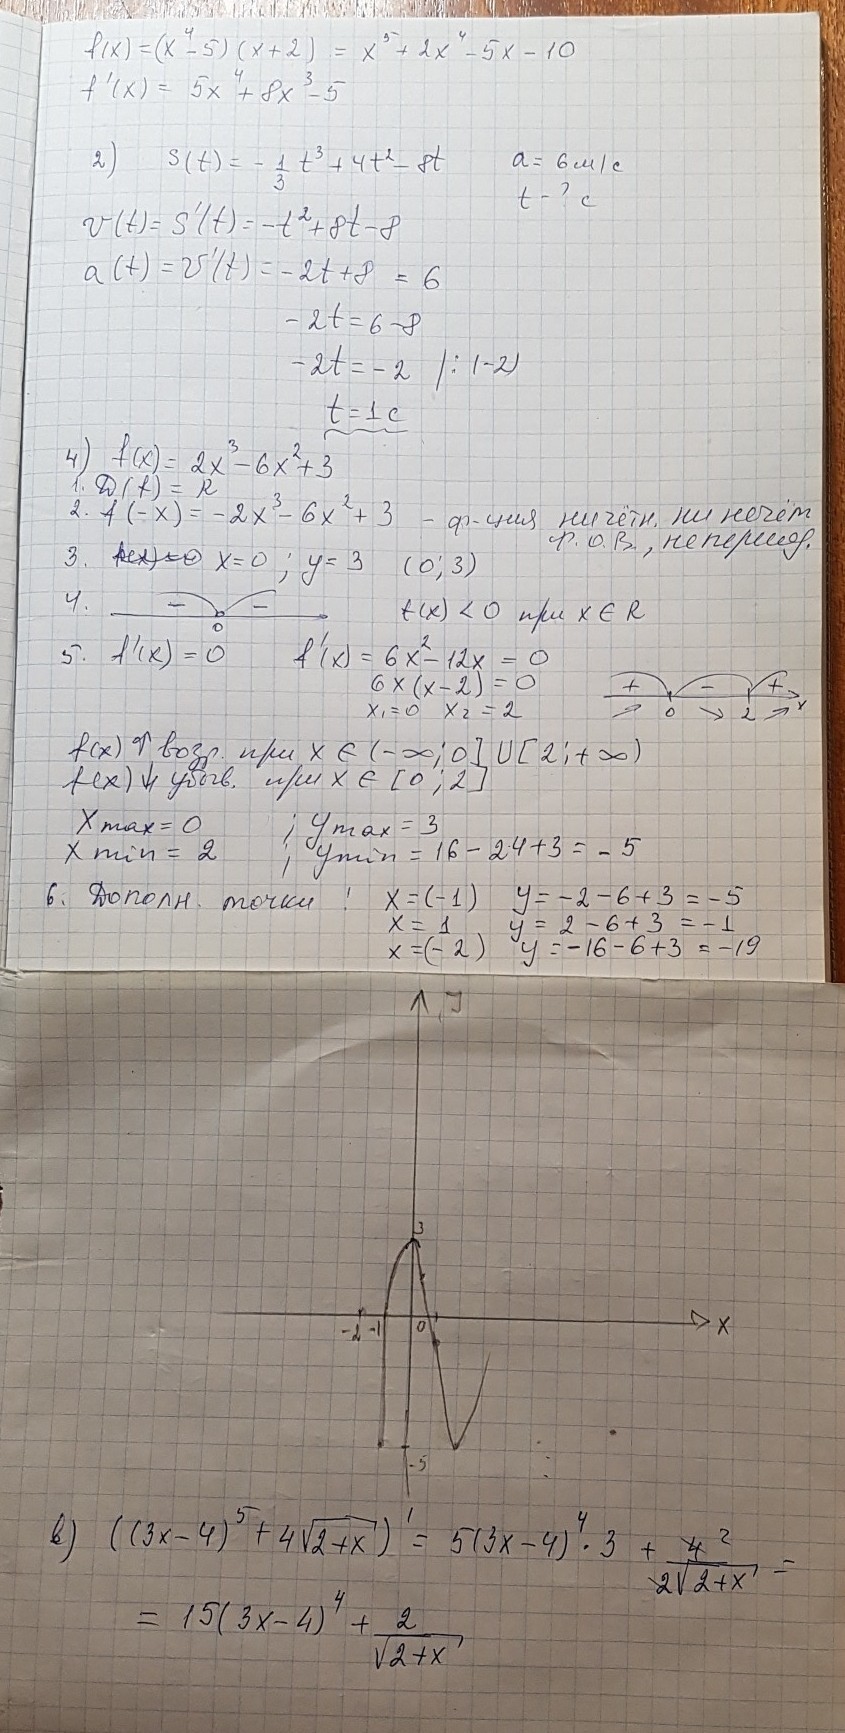 f(x) = (x⁴-5)(x+2) = x⁵+2x⁴-5x-10
f'(x) = 5x⁴+8x³-5
2) S(t) = -1/3 t³+4t²-8t a = 6м/с
t - ? с
v(t) = S'(t) = -t²+8t-8
a(t) = v'(t) = -2t+8 = 6
-2t = 6-8
-2t = -2 /: (-2)
t = 1 с
4) f(x) = 2x³-6x²+3
1. D(f) = R
2. f(-x) = -2x³-6x²+3 - ф-ция ни чётн. ни нечёт
Ф.О.В., не период.
3. x=0 ; y=3 (0; 3)
4. - - f(x) < 0 при x ∈ R
0
5. f'(x) = 0 f'(x) = 6x²-12x = 0
6x(x-2) = 0 + - +
x₁=0 x₂=2 0 2 x
f(x) ↑ возр. при x ∈ (-∞; 0] ∪ [2; +∞)
f(x) ↓ убыв. при x ∈ [0; 2]
x max = 0 ; y max = 3
x min = 2 ; y min = 16-24+3 = -5
6. Дополн. точки ! x=(-1) y = -2-6+3 = -5
x = 1 y = 2-6+3 = -1
x=(-2) y = -16-6+3 = -19
y
3
-2 -1 0 x
-5
в) ((3x-4)⁵+4√(2+x))' = 5(3x-4)⁴·3 + 4²/2√(2+x) =
= 15(3x-4)⁴ + 2/√(2+x)